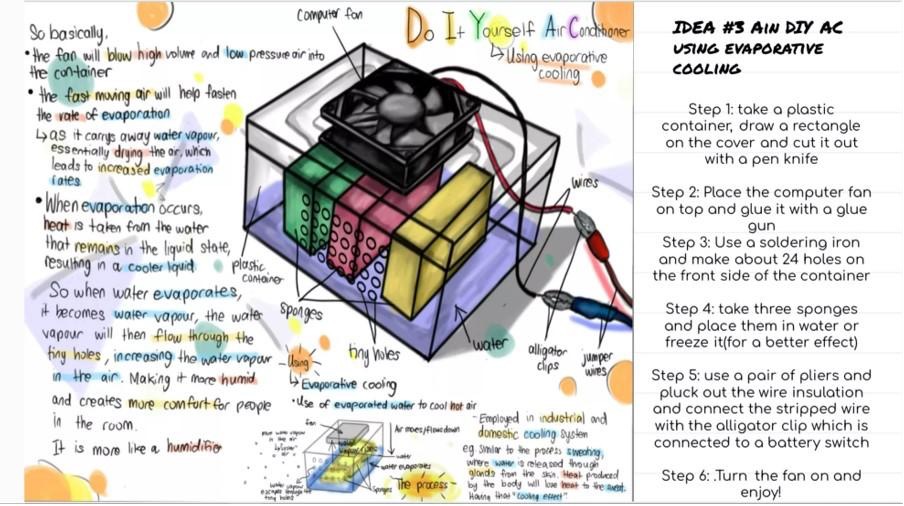 Computer fan
Do It Yourself Air Conditioner
↳ Using evaporative
cooling
So basically,
• the fan will blow high volume and low pressure air into
the container
• the fast moving air will help fasten
the rate of evaporation
↳ as it carrys away water vapour,
essentially drying the air, which
leads to increased evaporation
rates
• When evaporation occurs,
heat is taken from the water
that remains in the liquid state,
resulting in a cooler liquid
So when water evaporates,
it becomes water vapour, the water
vapour will then flow through the
tiny holes, increasing the water vapour
in the air. Making it more humid
and creates more comfort for people
in the room.
It is more like a humidifier
wires
plastic
container
sponges
tiny holes
water
alligator
clips
jumper
wires
Using
↳ Evaporative cooling
• Use of evaporated water to cool hot air
fan
Air moves/flows down
water
water evaporates
sponges
The process
- Employed in industrial and
domestic cooling system
eg. Similar to the process sweating,
where water is released though
glands from the skin. Heat produced
by the body will lose heat to the sweat.
Having that "cooling effect".
IDEA #3 Ain DIY AC
USING EVAPORATIVE
COOLING
Step 1: take a plastic
container, draw a rectangle
on the cover and cut it out
with a pen knife
Step 2: Place the computer fan
on top and glue it with a glue
gun
Step 3: Use a soldering iron
and make about 24 holes on
the front side of the container
Step 4: take three sponges
and place them in water or
freeze it(for a better effect)
Step 5: use a pair of pliers and
pluck out the wire insulation
and connect the stripped wire
with the alligator clip which is
connected to a battery switch
Step 6: .Turn the fan on and
enjoy!